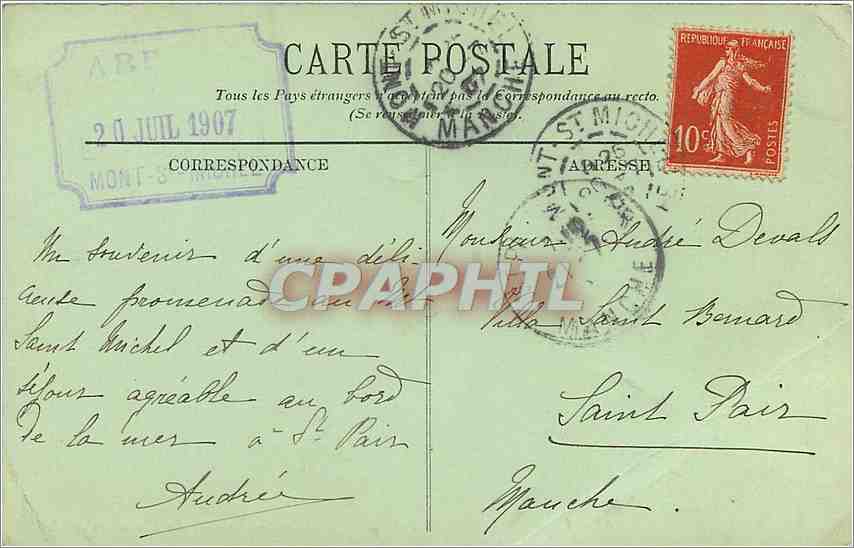 CARTE POSTALE
Tous les Pays étrangers n'acceptent pas la Correspondance au recto.
(Se renseigner à la Poste).
ABB
20 JUIL 1907
MONT-ST-MICHEL
CORRESPONDANCE
ADRESSE
REPUBLIQUE FRANÇAISE
10c
POSTES
MONT-ST MICHEL
20
MANCHE
MONT-ST MICHEL
MANCHE
MANCHE
CPAPHIL
Un souvenir d'une déli-
cieuse promenade au Mt
Saint Michel et d'un
séjour agréable au bord
de la mer à St Pair
Andrée
Monsieur André Devals
Villa Saint Bernard
Saint Pair
Manche.